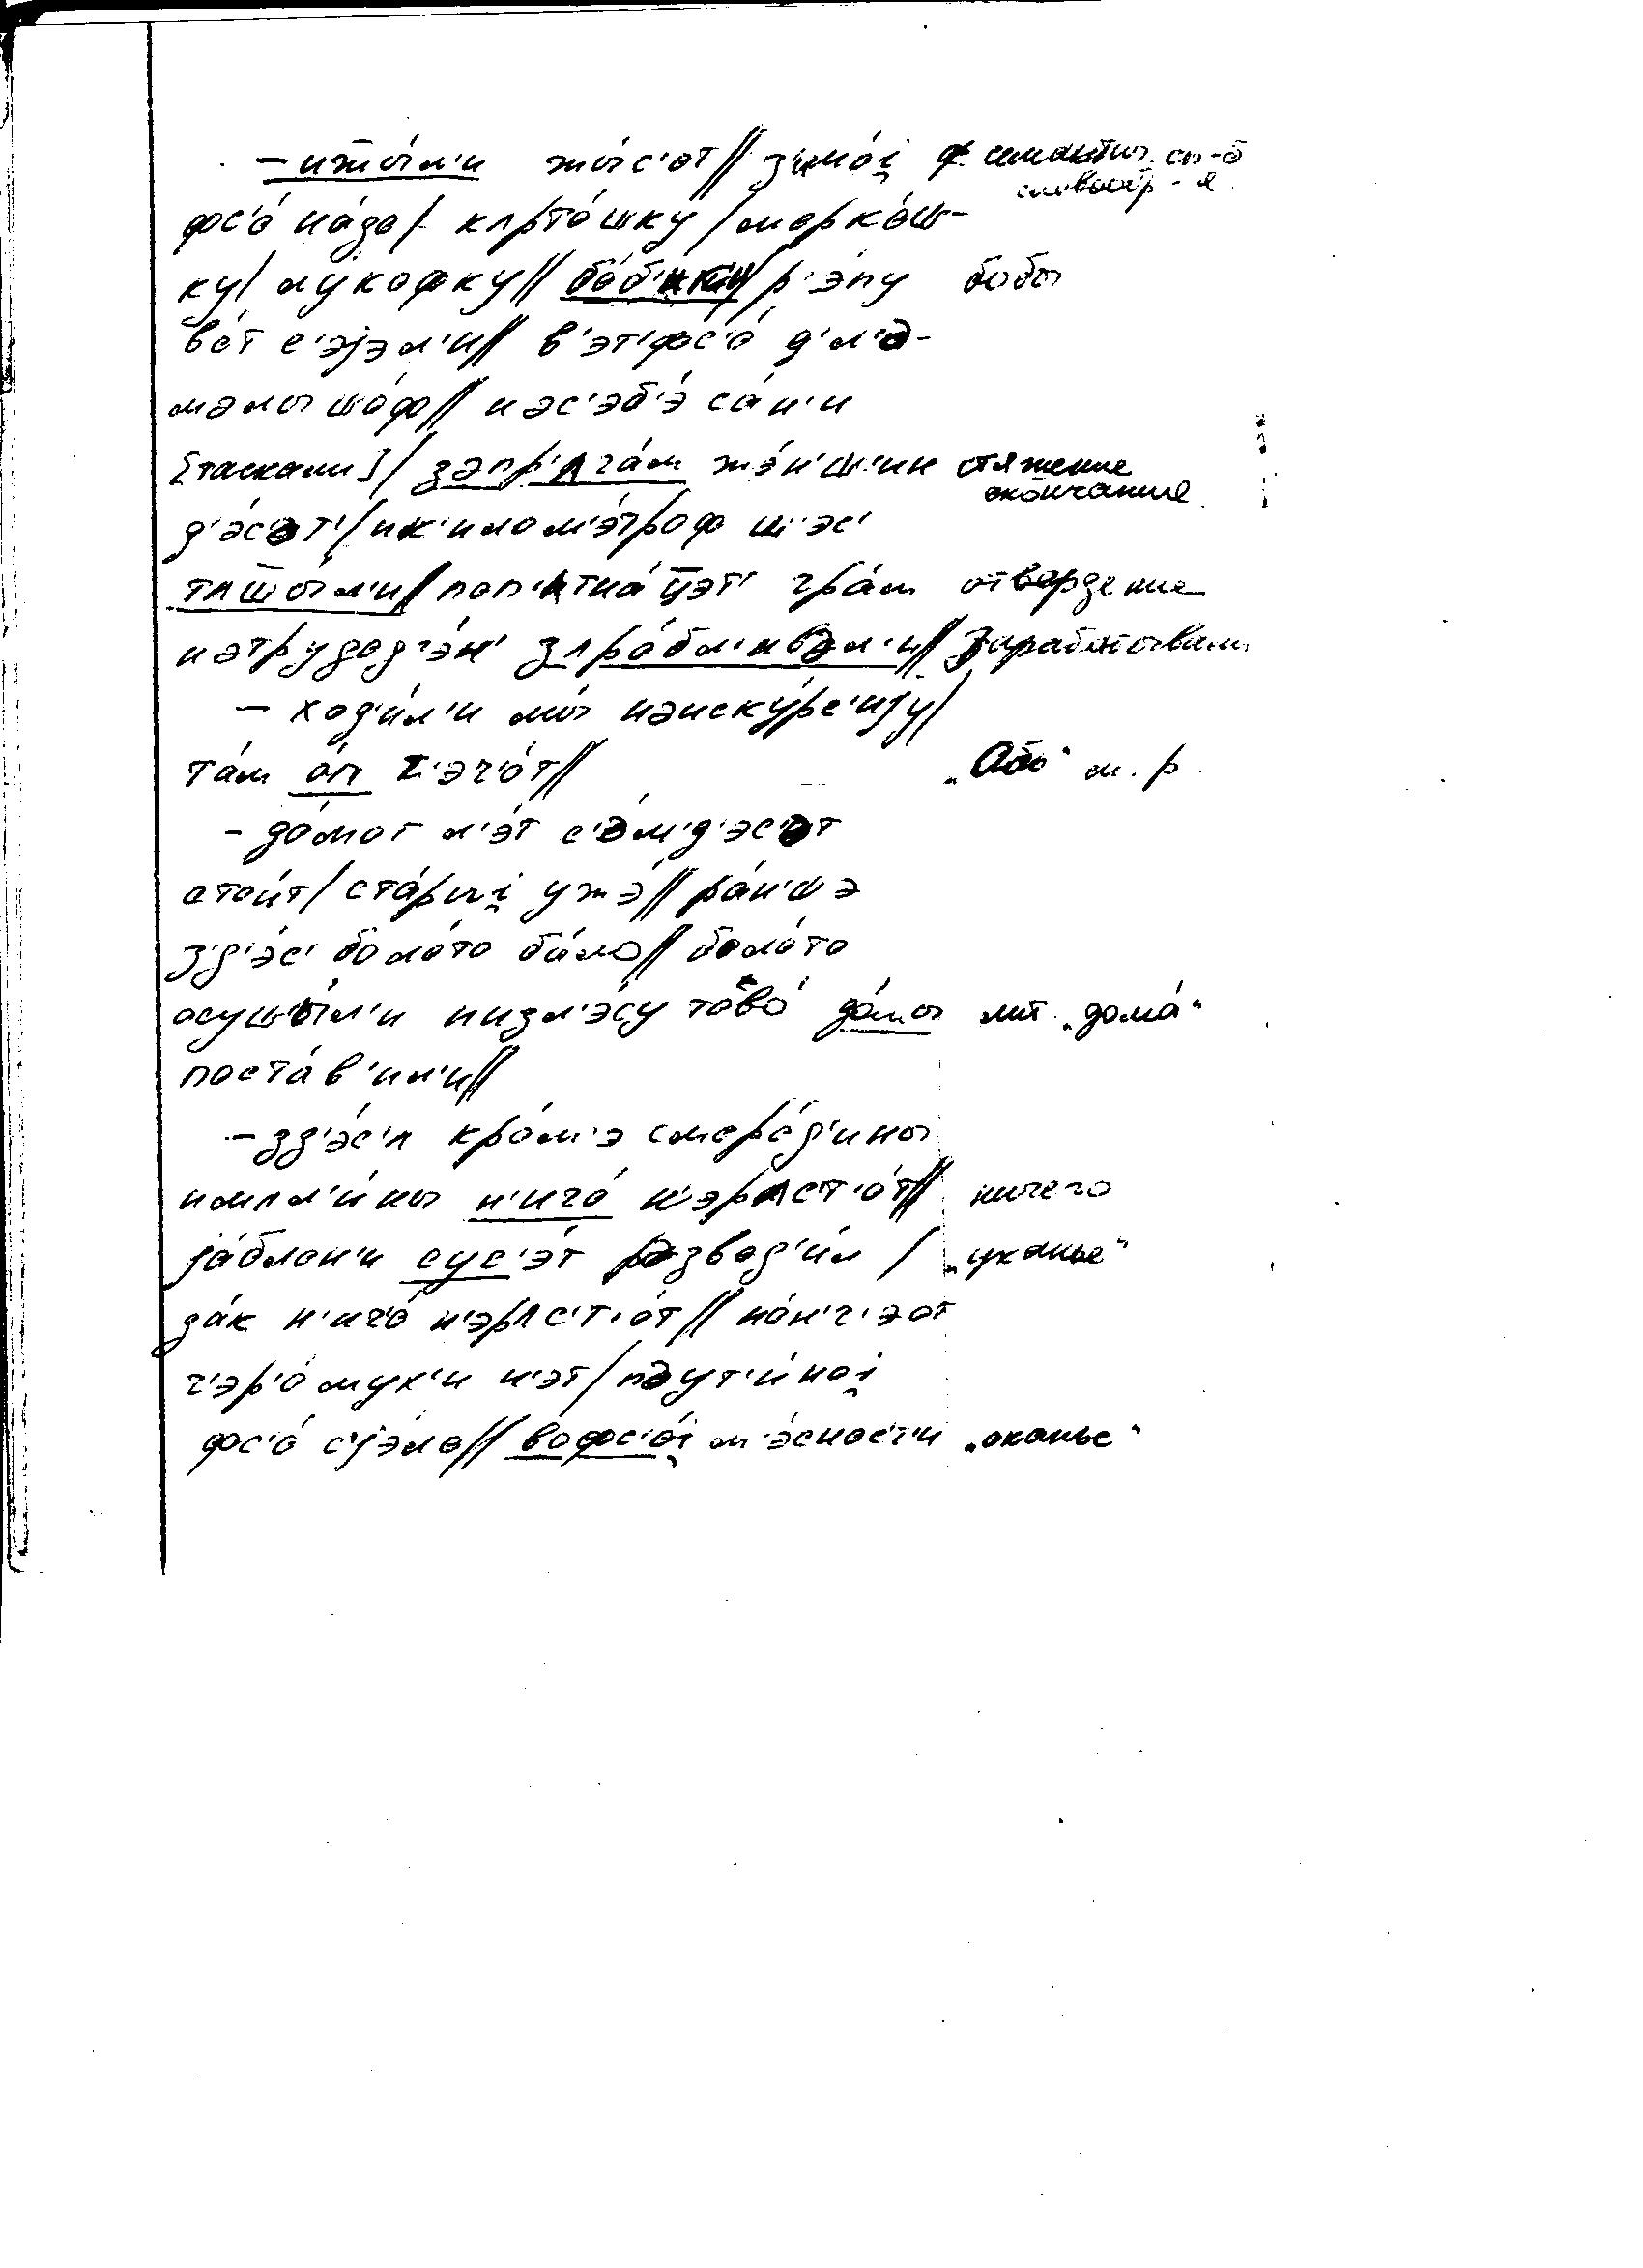 – ижы́л'и жы́с'от // з'имо́i̯ семантич. сп-б словообр-я
фс'о́ на́зо / кʌрто́шку / морко́ш-
ку / лу́кофку // бо́б'ики / р'э́пу бобы
во́т с'э́jэл'и // в'эт'фс'о́ д'л'ə-
мəлышо́ф // нəс'эб'э́ са́н'и
[таскали] / зəпр'ʌга́м жэ́н'ш'ин стяжение окончание
д'э́с'əт' / ик'илом'э́троф ш'эс'
тʌшы́л'и / поп'ʌтна́цэт' гра́м отвердение
нəтрудод'э́н' зʌро́бл'ивəл'и // зарабатывали
– ход'и́л'и мы́ нəиску́рс'иjу /
та́м о́п т'эч'о́т // „Обь“ м. р.
– до́мот л'э́т с'э́м'д'эс'əт
стои́т / ста́рыi̯ ужэ́ // ра́н'шэ
з'д'э́с' боло́то бы́ло // боло́то
осушы́л'и низл'э́су тово́ до́мы лит. „дома́“
поста́в'ил'и //
– зд'э́с'ʌ кро́м'э сморо́д'ины
имʌл'и́ны н'ичо́ н'эрʌст'о́т // ничего
jа́блон'и сус'э́т рəзвод'и́л / „уканье“
да́к н'ичо́ н'эрʌс'т'о́т // но́н'ч'эот
ч'эр'о́мух'и н'эт / пəут'и́ноi̯
фс'о́ сjэ́ло // вофс'о́i̯ м'э́сност'и „оканье“